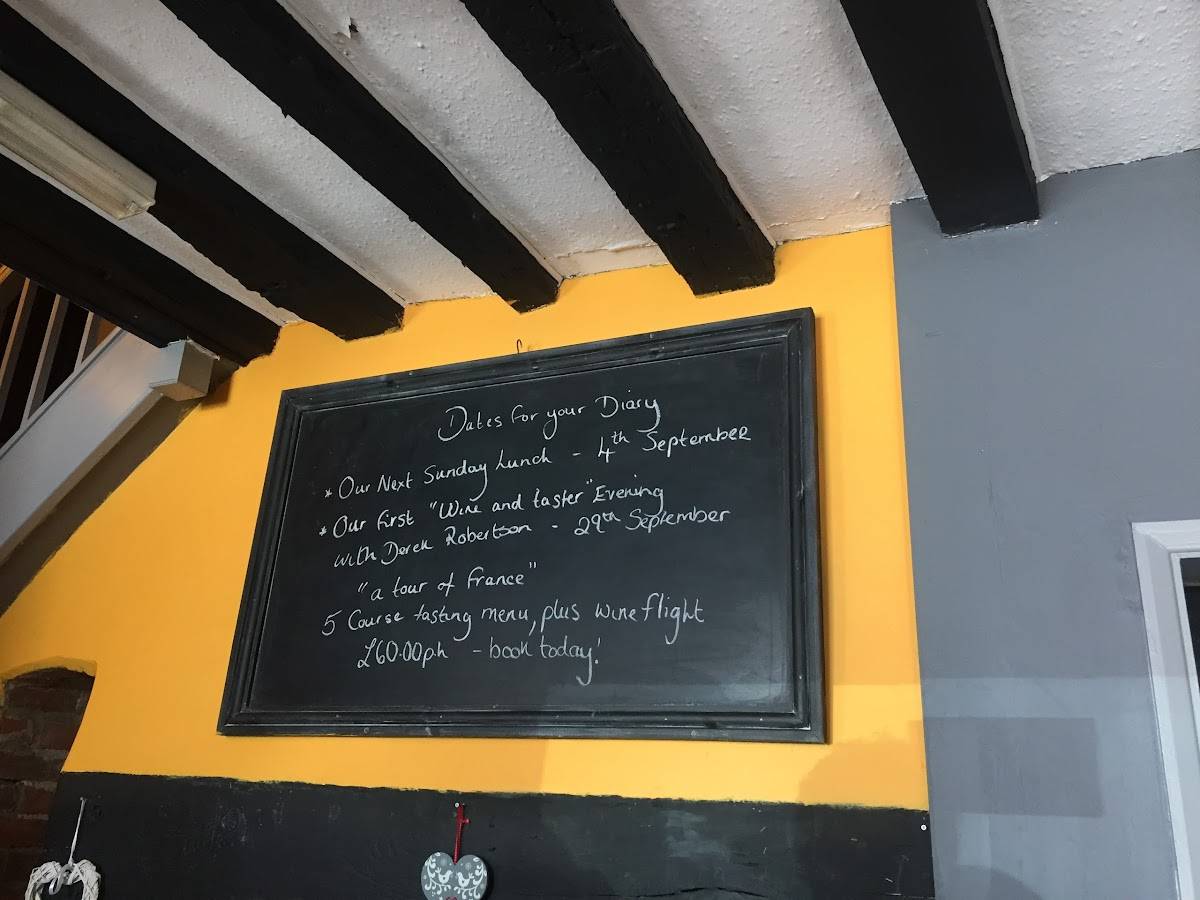 Dates for your Diary
* Our Next Sunday Lunch - 4th September
* Our first "Wine and taster" Evening
with Derek Robertson - 29th September
"a tour of france"
5 Course tasting menu, plus wine flight
£60.00ph - book today!